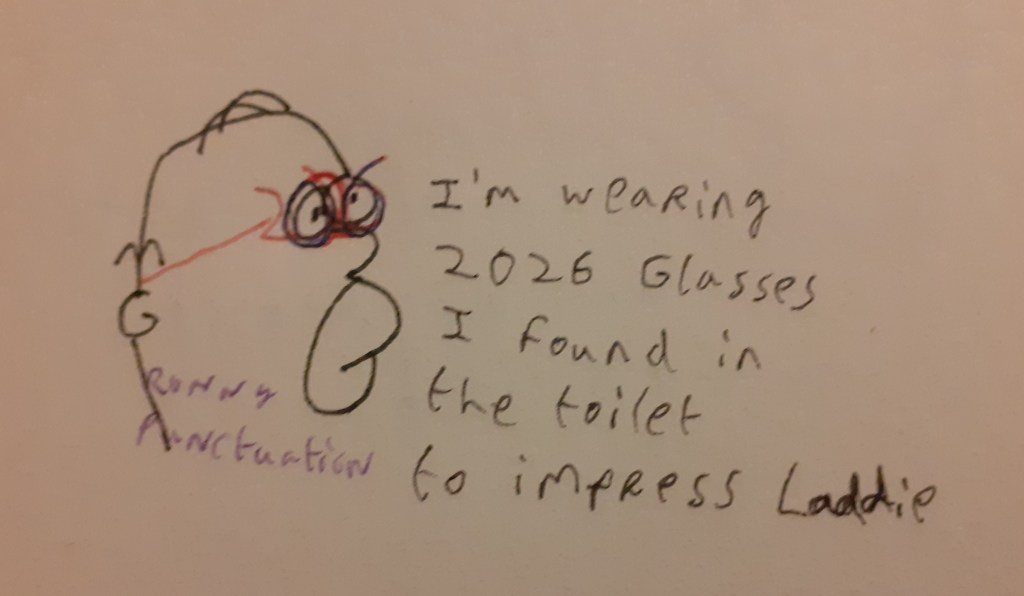 I'm wearing
2026 Glasses
I found in
the toilet
to impress Laddie
Runny
Punctuation